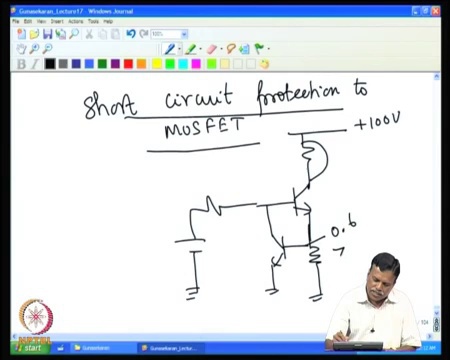 Gunasekaran_Lecture17 - Windows Journal
File Edit View Insert Actions Tools Help
100%
B I
Short circuit protection to
MOSFET
+100V
0.6
start
Gunasekaran
Gunasekaran_Lectu...